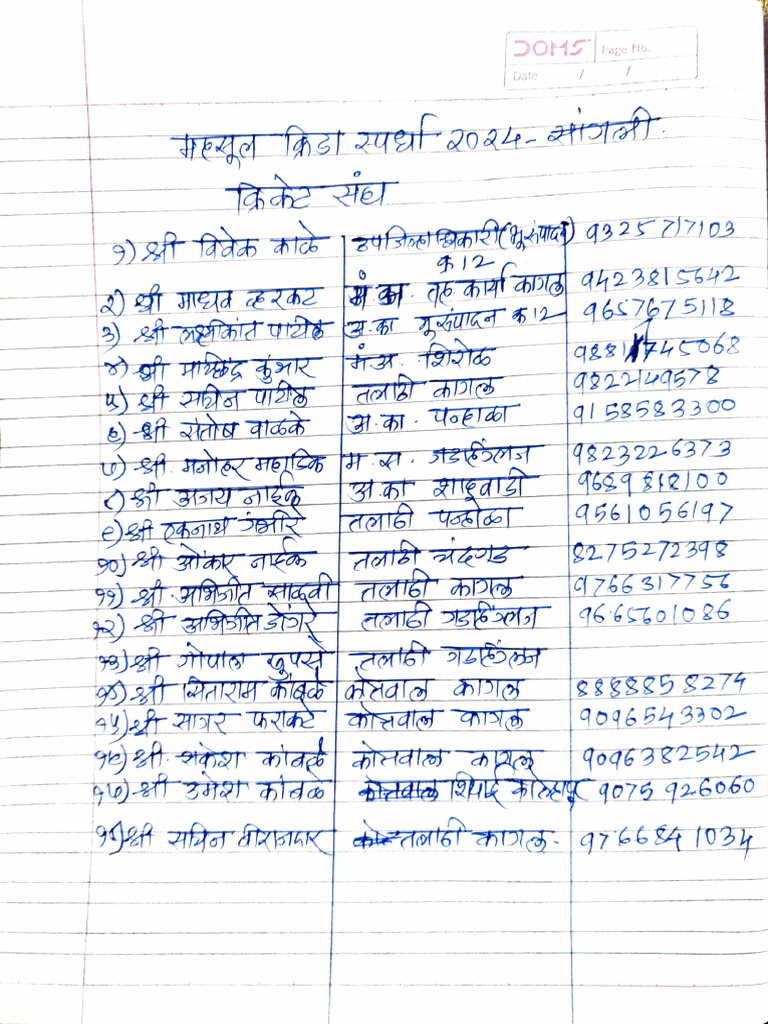 DOMS Page No.
Date / /
महसूल क्रिडा स्पर्धा २०२४ - सांगली.
क्रिकेट संघ
१) श्री विवेक काळे उपजिल्हाधिकारी (भूसंपादन) 9325717103
क्र 12
२) श्री माधव हरकट मं. का. तह कार्या कागल 9423815642
३) श्री लक्ष्मीकांत पाटील अ.का भूसंपादन क्र 12 9657675118
४) श्री मच्छिंद्र कुंभार मं.अ. शिरोळ 9881745068
५) श्री सचिन पाटील तलाठी कागल 9822149578
६) श्री संतोष वाळके अ.का. पन्हाळा 9158583300
७) श्री. मनोहर महाडिक म.स. गडहिंग्लज 9823226373
८) श्री अजय नाईक अ.का शाहूवाडी 9689818100
९) श्री एकनाथ गंभीरे तलाठी पन्हाळा 9561056197
१०) श्री ओंकार नाईक तलाठी चंदगड 8275272398
११) श्री. अभिजीत साळवी तलाठी कागल 9766317756
१२) श्री. अभिजीत डोंगरे तलाठी गडहिंग्लज 9665601086
१३) श्री गोपाल खुपसे तलाठी गडहिंग्लज
१४) श्री सिताराम कांबळे कोतवाल कागल 8888858274
१५) श्री सागर फराकटे कोतवाल कागल 9096543302
१६) श्री. राकेश कांबळे कोतवाल कागल 9096382542
१७) श्री उमेश कांबळे कोतवाल शिपाई कोल्हापूर 9075926060
१८) श्री सचिन बीराजदार तलाठी कागल. 9766841034